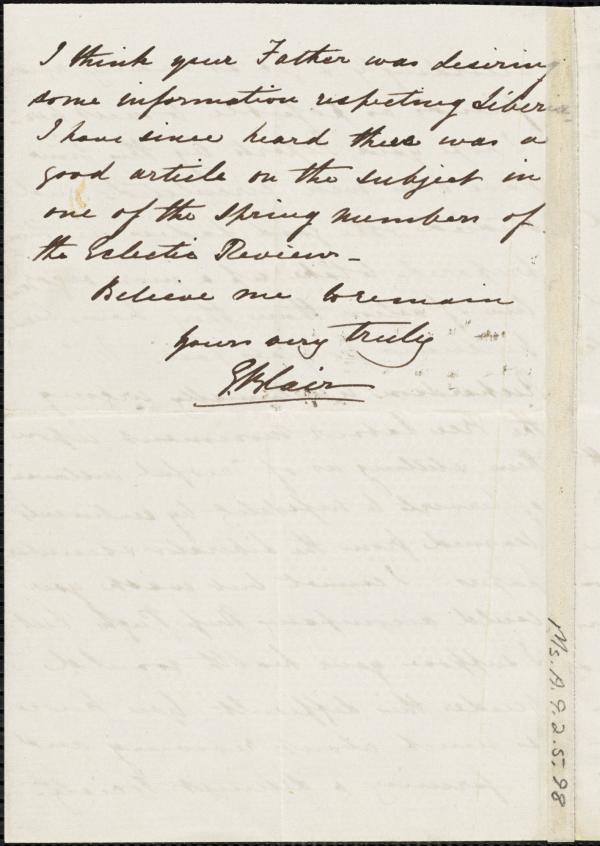 I think your Father was desiring
some information respecting Liberia
I have since heard there was a
good article on the subject in
one of the spring numbers of
the Eclectic Review –
Believe me to remain
yours very truly
E. Blair
Ms. A. 9. 2. 5. 98